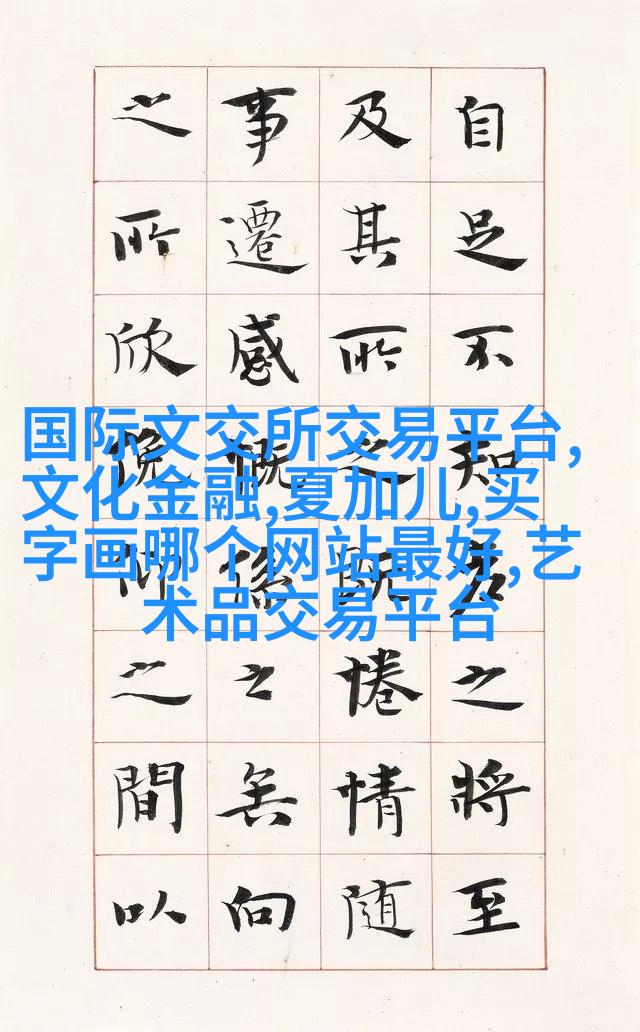 自足不知老之將至
及其所之既惓情隨
事遷感慨係之矣向
之所欣俛仰之間以
国际文交所交易平台,
文化金融,夏加儿,买
字画哪个网站最好,艺
术品交易平台